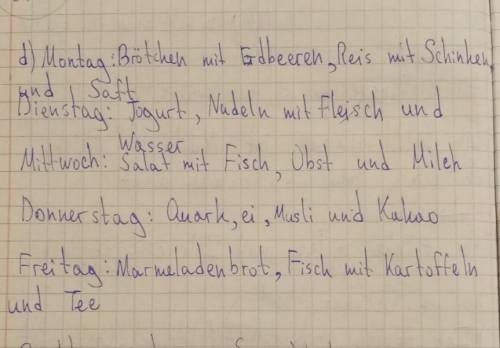 d) Montag: Brötchen mit Erdbeeren, Reis mit Schinken
und Saft
Dienstag: Jogurt, Nudeln mit Fleisch und
Wasser
Mittwoch: Salat mit Fisch, Obst und Milch
Donnerstag: Quark, ei, Musli und Kakao
Freitag: Marmeladenbrot, Fisch mit Kartoffeln
und Tee